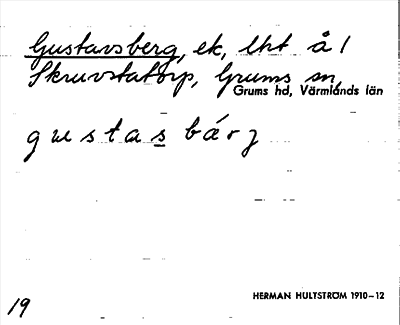 Gustavsberg, ek, lht å 1
Skruvstatorp, Grums sn,
Grums hd, Värmlands län
gustas bárj
HERMAN HULTSTRÖM 1910–12
19